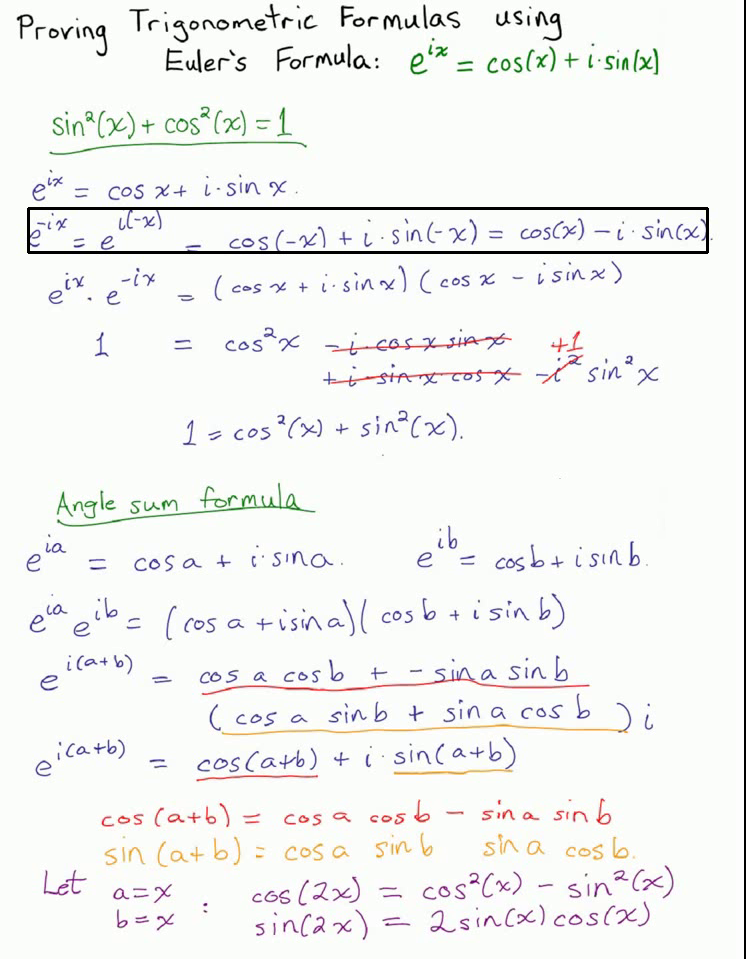 Proving Trigonometric Formulas using
Euler's Formula: e^{ix} = cos(x) + i·sin(x)
sin²(x) + cos²(x) = 1
e^{ix} = cos x + i·sin x.
e^{-ix} = e^{i(-x)} = cos(-x) + i·sin(-x) = cos(x) - i·sin(x).
e^{ix}·e^{-ix} = (cos x + i·sin x)(cos x - i sin x)
1 = cos²x - i·cos x sin x +1
+ i·sin x cos x - i² sin²x
1 = cos²(x) + sin²(x).
Angle sum formula
e^{ia} = cos a + i·sin a. e^{ib} = cos b + i sin b.
e^{ia} e^{ib} = (cos a + i sin a)(cos b + i sin b)
e^{i(a+b)} = cos a cos b + - sin a sin b
(cos a sin b + sin a cos b) i
e^{i(a+b)} = cos(a+b) + i·sin(a+b)
cos(a+b) = cos a cos b - sin a sin b
sin(a+b) = cos a sin b sin a cos b.
Let a=x : cos(2x) = cos²(x) - sin²(x)
b=x sin(2x) = 2 sin(x) cos(x)